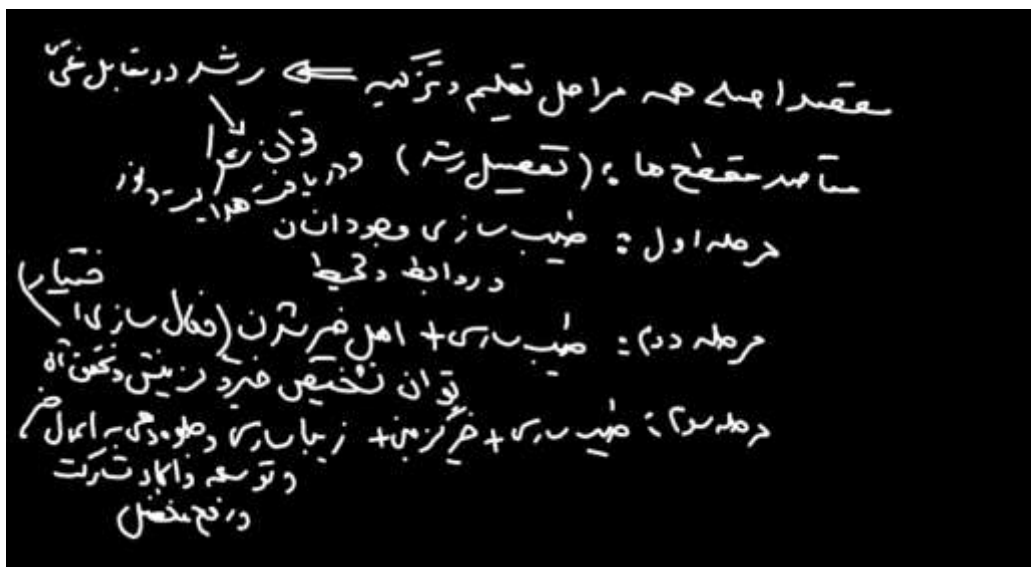 مقصد اصلی همه مراحل تعلیم و تزکیه ⇐ رشد در مقابل غیّ
مقاصد مقطع ها : (تفصیل رشد) و دریافت هدایت و نور
قرآن
مرحله اول : طیب سازی وجود انسان
در روابط و محیط
مرحله دوم : طیب سازی + اهل خیر شدن (فعال سازی اختیار)
توان تشخیص خیر و گزینش و تحقق آن
مرحله سوم : طیب سازی + خیرگزینی + زیباسازی و جلوه دهی به اعمال خیر
و توسعه و ایجاد شرکت
در خیر